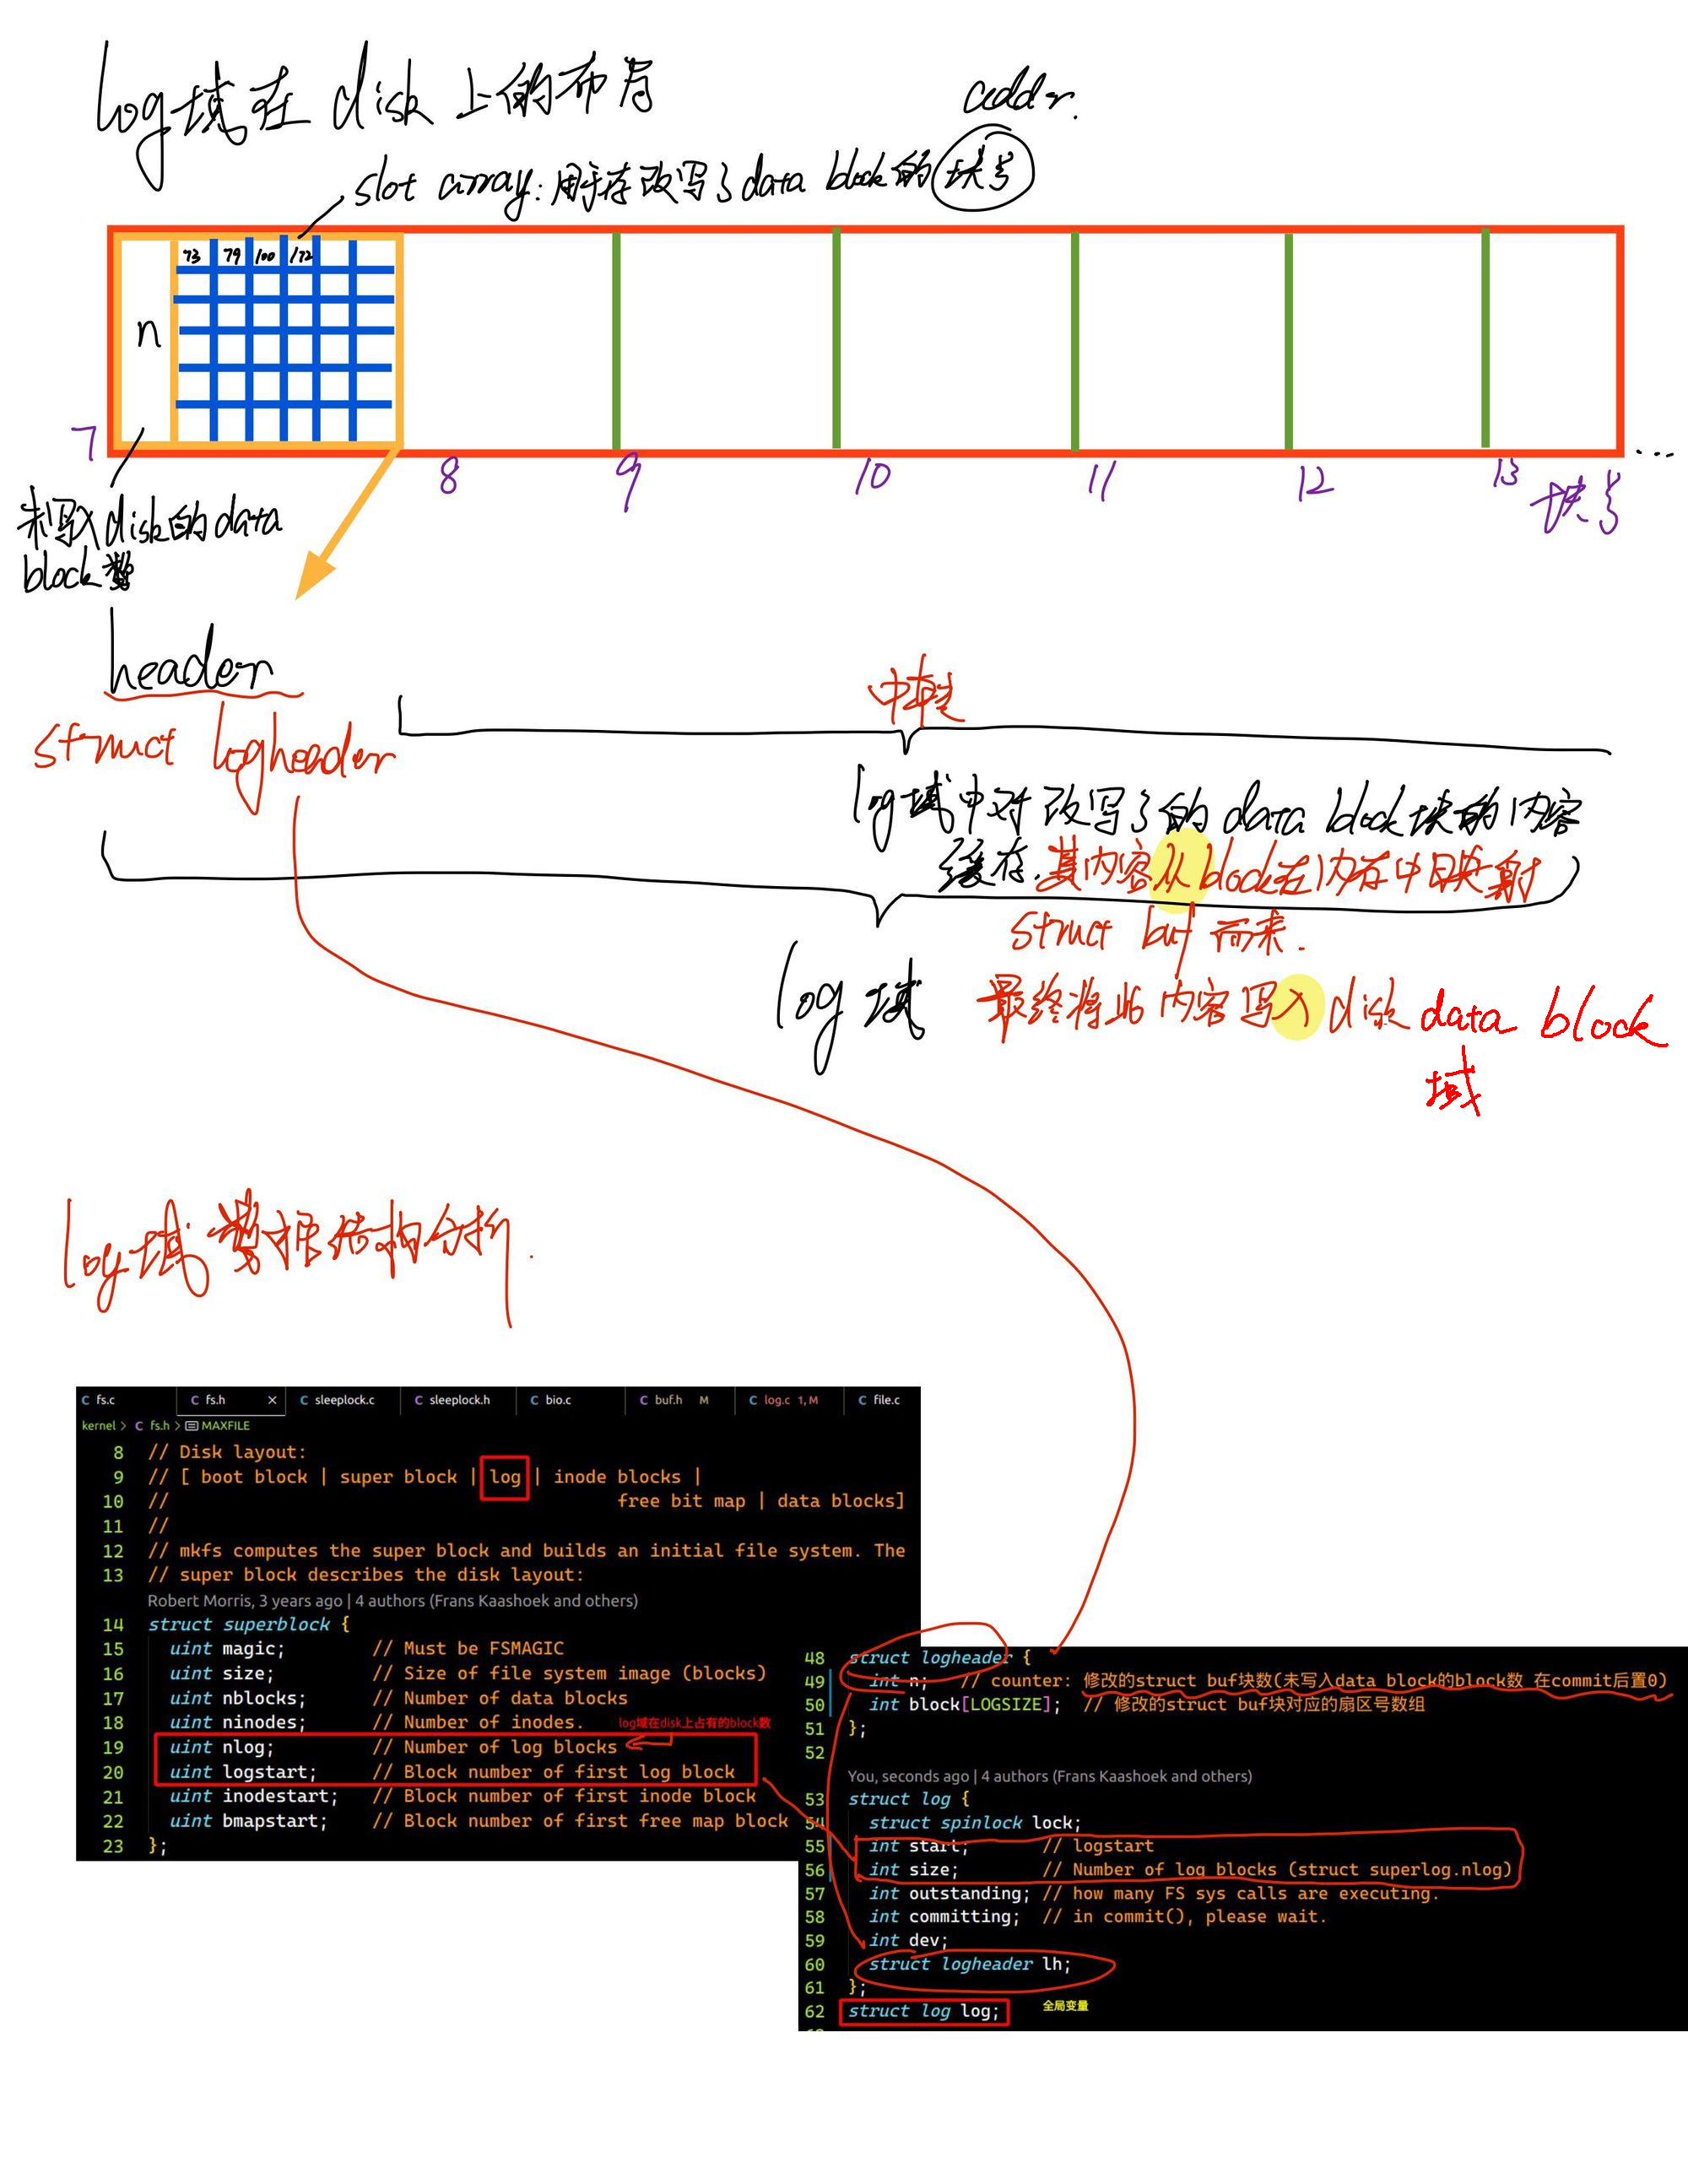 log域在 disk 上的布局
addr.
slot array: 用于存改写了 data block 的 块号
73 79 100 172
n
7 8 9 10 11 12 13 块号
...
未写入disk的data
block数
header
struct logheader
中转
log域中对改写了的 data block 块的内容
缓存. 其内容从block在内存中映射
struct buf 而来.
log 域
最终将此内容写入disk data block
域
log域 数据结构分析.
fs.c fs.h × sleeplock.c sleeplock.h bio.c buf.h M log.c 1, M file.c
kernel > C fs.h > MAXFILE
8 // Disk layout:
9 // [ boot block | super block | log | inode blocks |
10 // free bit map | data blocks]
11 //
12 // mkfs computes the super block and builds an initial file system. The
13 // super block describes the disk layout:
Robert Morris, 3 years ago | 4 authors (Frans Kaashoek and others)
14 struct superblock {
15 uint magic; // Must be FSMAGIC
16 uint size; // Size of file system image (blocks)
17 uint nblocks; // Number of data blocks
18 uint ninodes; // Number of inodes. log域在disk上占有的block数
19 uint nlog; // Number of log blocks
20 uint logstart; // Block number of first log block
21 uint inodestart; // Block number of first inode block
22 uint bmapstart; // Block number of first free map block
23 };
48 struct logheader {
49 int n; // counter: 修改的struct buf块数(未写入data block的block数 在commit后置0)
50 int block[LOGSIZE]; // 修改的struct buf块对应的扇区号数组
51 };
52
You, seconds ago | 4 authors (Frans Kaashoek and others)
53 struct log {
54 struct spinlock lock;
55 int start; // logstart
56 int size; // Number of log blocks (struct superlog.nlog)
57 int outstanding; // how many FS sys calls are executing.
58 int committing; // in commit(), please wait.
59 int dev;
60 struct logheader lh;
61 };
62 struct log log; 全局变量